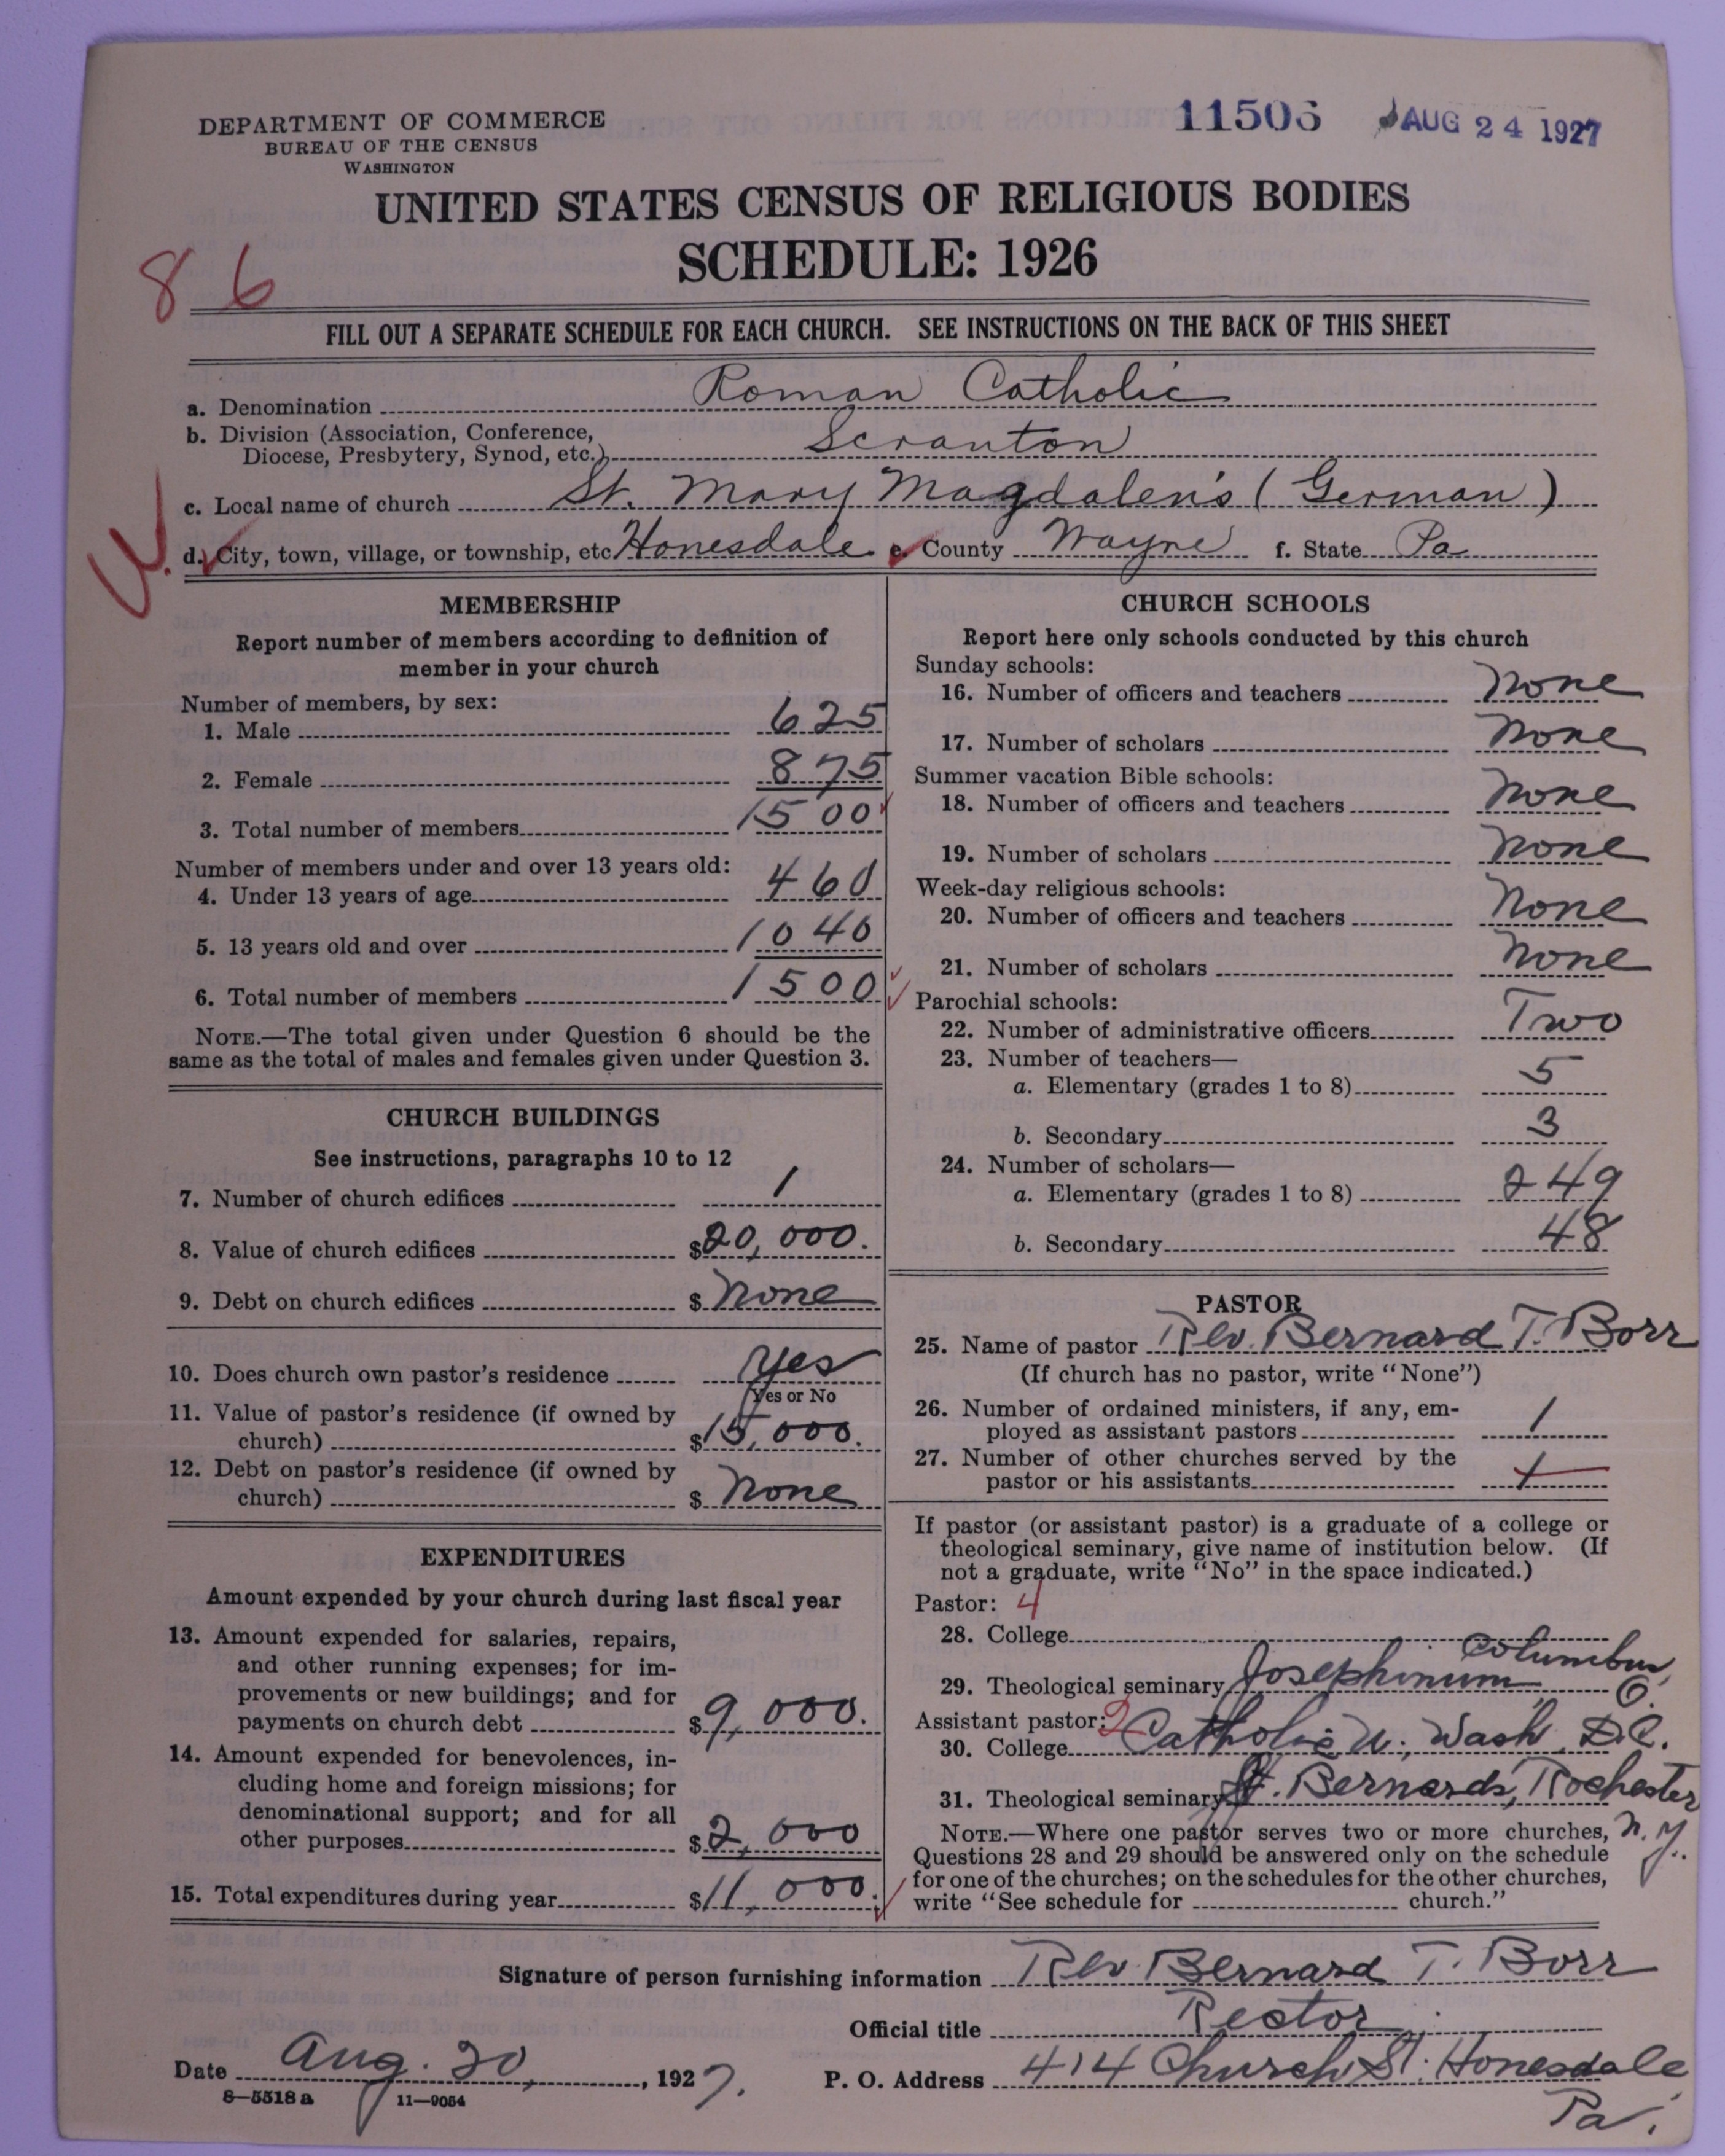 DEPARTMENT OF COMMERCE
BUREAU OF THE CENSUS
WASHINGTON
11506 AUG 24 1927
UNITED STATES CENSUS OF RELIGIOUS BODIES
SCHEDULE: 1926
8 6
FILL OUT A SEPARATE SCHEDULE FOR EACH CHURCH. SEE INSTRUCTIONS ON THE BACK OF THIS SHEET
a. Denomination Roman Catholic
b. Division (Association, Conference,
Diocese, Presbytery, Synod, etc.) Scranton
c. Local name of church St. Mary Magdalen's (German)
d. City, town, village, or township, etc Honesdale e. County Wayne f. State Pa
MEMBERSHIP
Report number of members according to definition of
member in your church
Number of members, by sex:
1. Male 625
2. Female 875
3. Total number of members 1500
Number of members under and over 13 years old:
4. Under 13 years of age 460
5. 13 years old and over 1040
6. Total number of members 1500
NOTE.—The total given under Question 6 should be the
same as the total of males and females given under Question 3.
CHURCH BUILDINGS
See instructions, paragraphs 10 to 12
7. Number of church edifices 1
8. Value of church edifices $20,000.
9. Debt on church edifices $ None
10. Does church own pastor's residence Yes
Yes or No
11. Value of pastor's residence (if owned by
church) $15,000.
12. Debt on pastor's residence (if owned by
church) $ None
EXPENDITURES
Amount expended by your church during last fiscal year
13. Amount expended for salaries, repairs,
and other running expenses; for im-
provements or new buildings; and for
payments on church debt $9,000.
14. Amount expended for benevolences, in-
cluding home and foreign missions; for
denominational support; and for all
other purposes $2,000
15. Total expenditures during year $11,000.
CHURCH SCHOOLS
Report here only schools conducted by this church
Sunday schools:
16. Number of officers and teachers None
17. Number of scholars None
Summer vacation Bible schools:
18. Number of officers and teachers None
19. Number of scholars None
Week-day religious schools:
20. Number of officers and teachers None
21. Number of scholars None
Parochial schools:
22. Number of administrative officers Two
23. Number of teachers—
a. Elementary (grades 1 to 8) 5
b. Secondary 3
24. Number of scholars—
a. Elementary (grades 1 to 8) 249
b. Secondary 48
PASTOR
25. Name of pastor Rev. Bernard T. Borr
(If church has no pastor, write "None")
26. Number of ordained ministers, if any, em-
ployed as assistant pastors 1
27. Number of other churches served by the
pastor or his assistants
If pastor (or assistant pastor) is a graduate of a college or
theological seminary, give name of institution below. (If
not a graduate, write "No" in the space indicated.)
Pastor: 4
28. College
29. Theological seminary Josephinum Columbus, O.
Assistant pastor: 2
30. College Catholic U., Wash. D.C.
31. Theological seminary St. Bernards, Rochester
N.Y.
NOTE.—Where one pastor serves two or more churches,
Questions 28 and 29 should be answered only on the schedule
for one of the churches; on the schedules for the other churches,
write "See schedule for church."
Signature of person furnishing information Rev. Bernard T. Borr
Official title Rector
Date Aug. 20, 1927. P. O. Address 414 Church St. Honesdale
Pa.
8—5518 a 11—9054